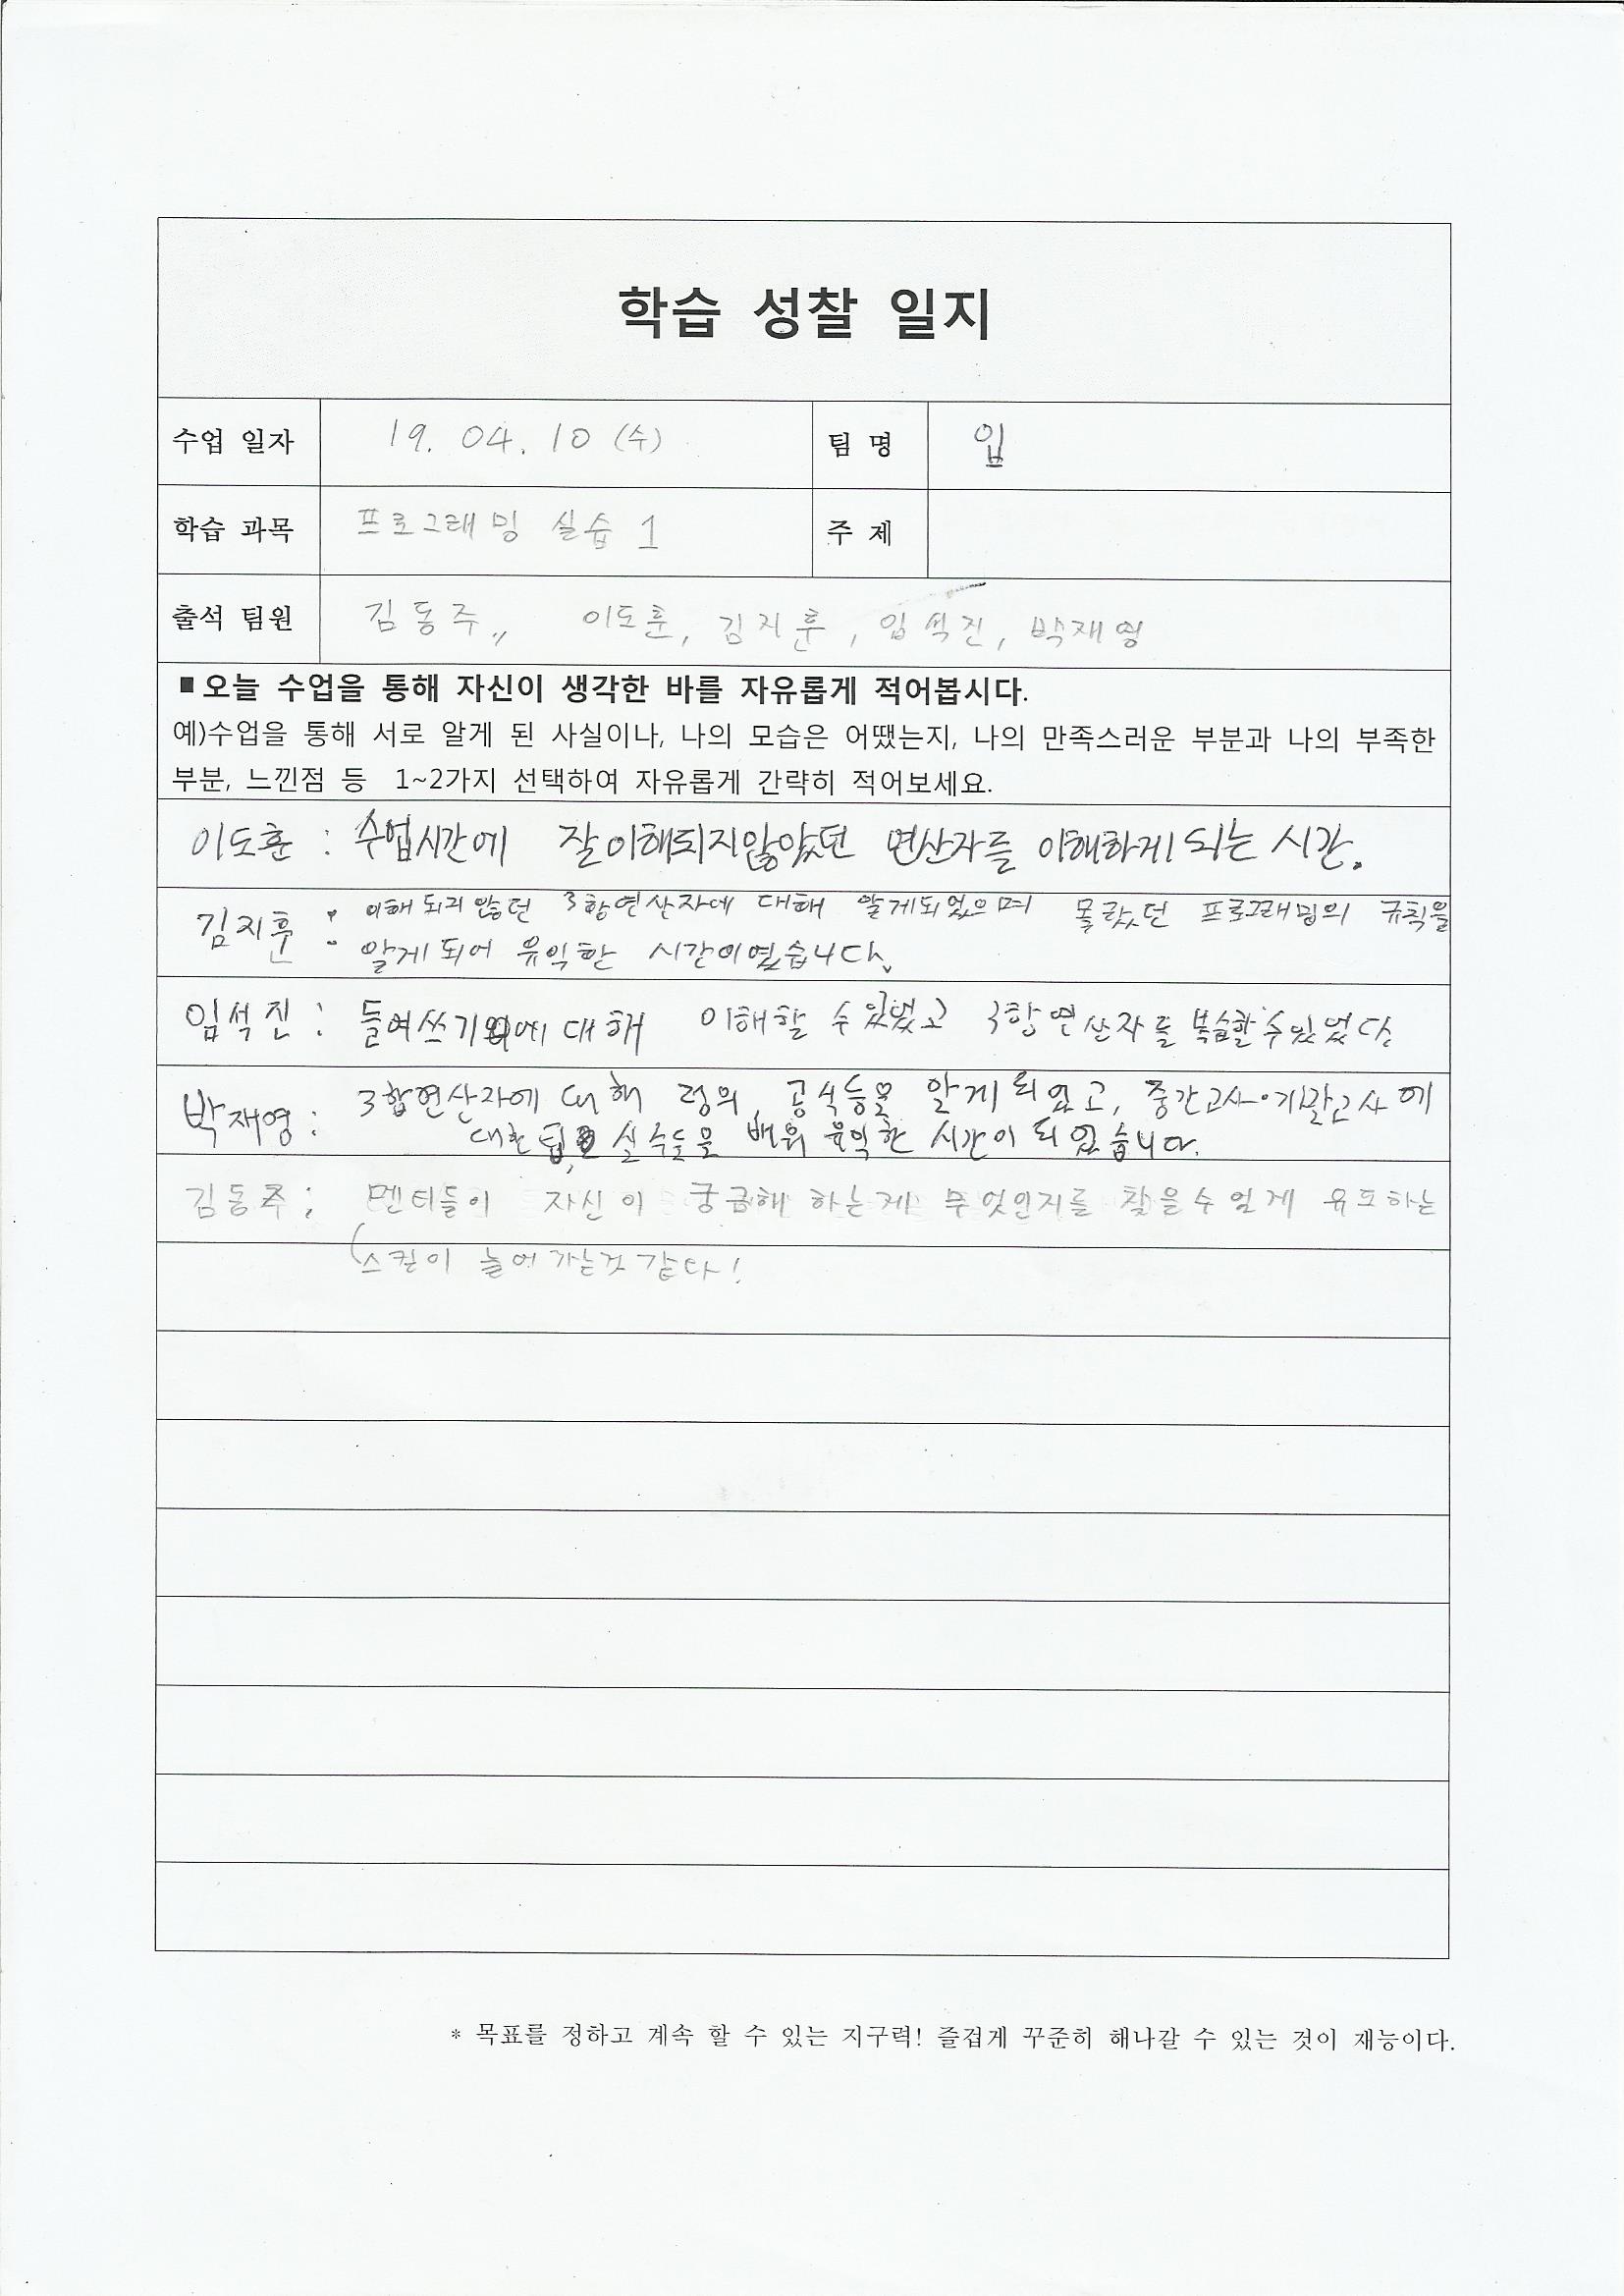 학습 성찰 일지
수업 일자 19. 04. 10 (수) 팀 명 입
학습 과목 프로그래밍 실습 1 주 제
출석 팀원 김동주,, 이도훈, 김지훈, 임석진, 박재영
■오늘 수업을 통해 자신이 생각한 바를 자유롭게 적어봅시다.
예)수업을 통해 서로 알게 된 사실이나, 나의 모습은 어땠는지, 나의 만족스러운 부분과 나의 부족한
부분, 느낀점 등 1~2가지 선택하여 자유롭게 간략히 적어보세요.
이도훈 : 수업시간에 잘이해되지않았던 연산자를 이해하게되는 시간.
김지훈 : 이해되지 않던 3항연산자에 대해 알게되었으며 몰랐던 프로그래밍의 규칙을
알게되어 유익한 시간이였습니다.
임석진 : 들여쓰기에 대해 이해할 수 있었고 3항연산자를 복습할 수 있었다.
박재영 : 3합연산자에 대해 정의, 공식등을 알게되었고, 중간고사·기말고사에
대한 팁, 실수들을 배워 유익한 시간이 되었습니다.
김동주 ; 멘티들이 자신이 궁금해 하는게 무엇인지를 찾을수 있게 유도하는
스킬이 늘어가는것 같다!
* 목표를 정하고 계속 할 수 있는 지구력! 즐겁게 꾸준히 해나갈 수 있는 것이 재능이다.